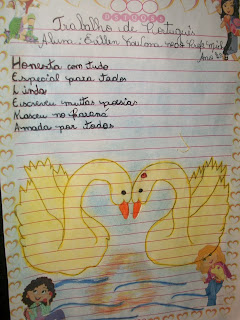 Trabalho de Português
Aluna: Evillen
Ano
Honesta com tudo
Especial para todos
Linda
Escreveu muitas poesias
Nasceu no Paraná
Amada por todos